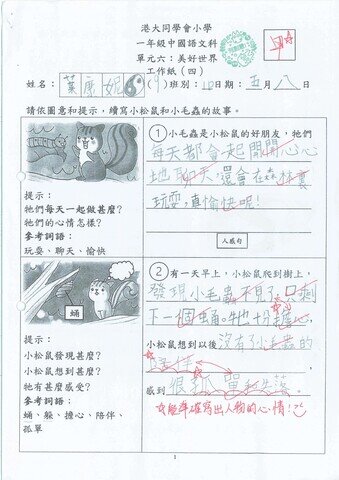 港大同學會小學
一年級中國語文科
單元六：美好世界
工作紙（四）
姓名：葉 妮 (9) 班別：1D 日期：五月八日
請依圖意和提示，續寫小松鼠和小毛蟲的故事。
提示：
牠們每天一起做甚麼？
牠們的心情怎樣？
參考詞語：
玩耍、聊天、愉快
① 小毛蟲是小松鼠的好朋友，牠們
每天都會一起開開心心
地聊天，還會在森林裏
玩耍，真愉快呢！
人感句
蛹
提示：
小松鼠發現甚麼？
小松鼠想到甚麼？
牠有甚麼感受？
參考詞語：
蛹、躲、擔心、陪伴、
孤單
② 有一天早上，小松鼠爬到樹上，
發現小毛蟲不見了，只剩
下一個蛹。牠十分擔心。
小松鼠想到以後沒有了小毛蟲的
陪伴，
感到很孤單和失落。
能準確寫出人物的心情！
1